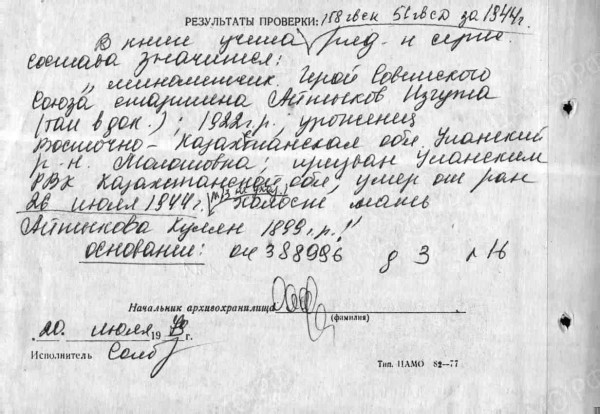 РЕЗУЛЬТАТЫ ПРОВЕРКИ: 158 гвсп 51 гвсд за 1944 г.
В книге учета ряд. и серж.
состава значится:
„минометчик Герой Советского
Союза старшина Айтыков Изгута
(так в док.); 1922 г.р., уроженец
Восточно-Казахстанская обл, Уланский
р-н. Малошовка; призван Уланским
РВК Казахстанской обл, умер от ран
26 июля 1944 г. (м/з не указ.) мать
Айтыкова Кулян 1899 г.р.!"
основание: оп 388986 д 3 л
Начальник архивохранилища
(фамилия)
„20" июля 19 г.
Исполнитель
Тип. ЦАМО 82—77